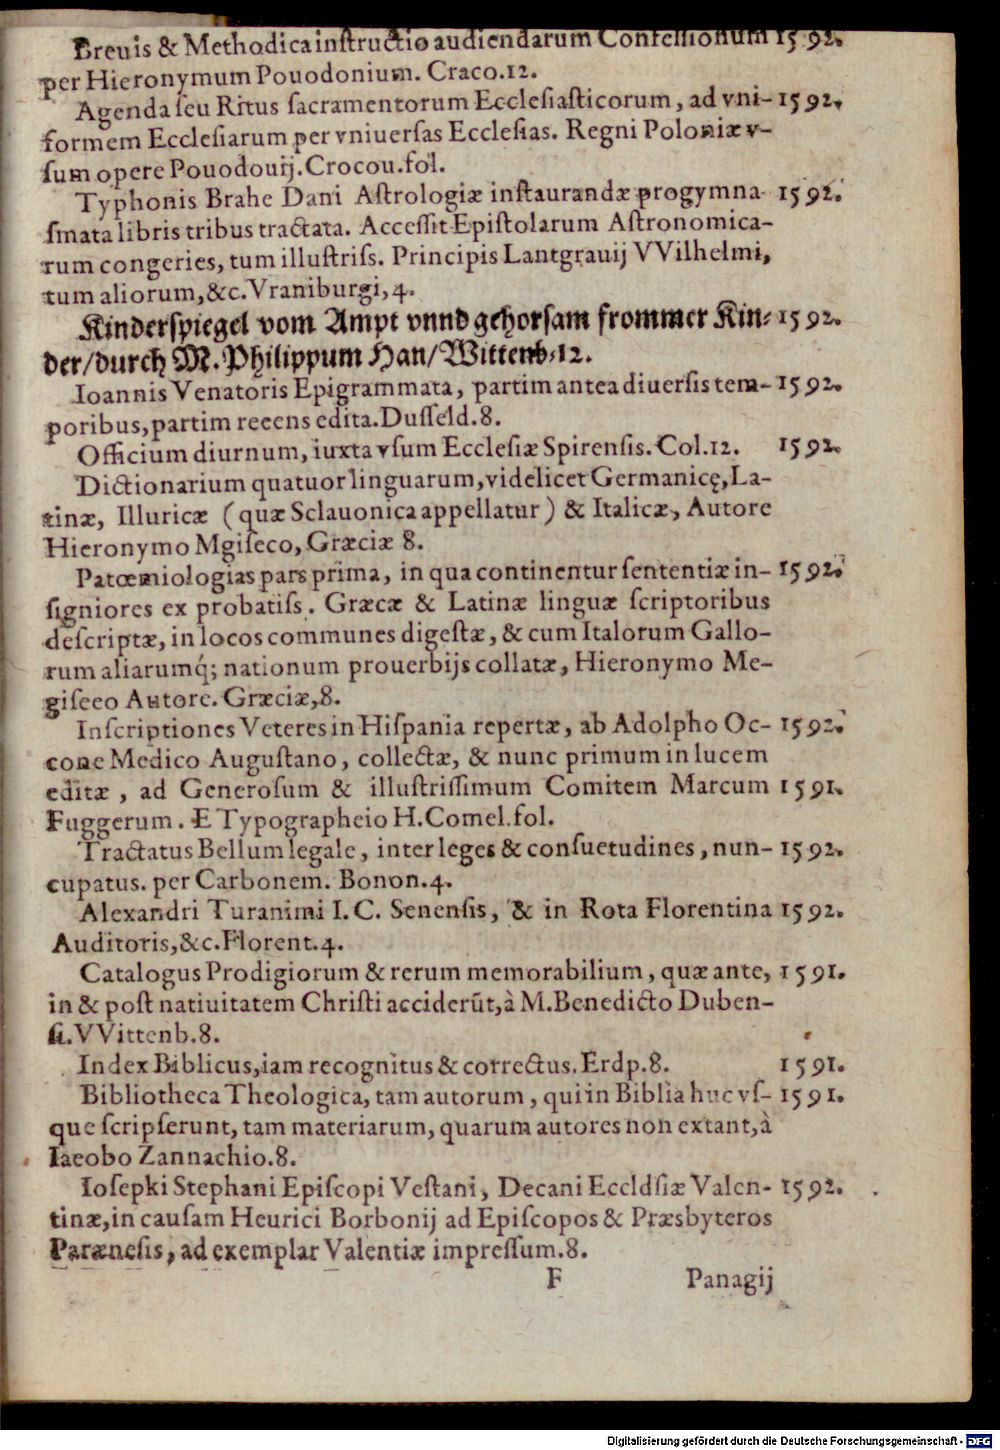 Breuis & Methodica instructio audiendarum Confessionum 1592.
per Hieronymum Pouodonium. Craco.12.
Agenda seu Ritus sacramentorum Ecclesiasticorum, ad vni- 1592.
formem Ecclesiarum per vniuersas Ecclesias. Regni Poloniæ v-
sum opere Pouodouij. Crocou.fol.
Typhonis Brahe Dani Astrologiæ instaurandæ progymna- 1592.
smata libris tribus tractata. Accessit Epistolarum Astronomica-
rum congeries, tum illustriss. Principis Lantgrauij VVilhelmi,
tum aliorum,&c. Vraniburgi,4.
Kinderspiegel vom Ampt vnnd gehorsam frommer Kin- 1592.
der/durch M. Philippum Han/Wittenb.12.
Ioannis Venatoris Epigrammata, partim antea diuersis tem- 1592.
poribus, partim recens edita. Dusseld.8.
Officium diurnum, iuxta vsum Ecclesiæ Spirensis. Col.12. 1592.
Dictionarium quatuor linguarum, videlicet Germanicę, La-
tinæ, Illuricæ (quæ Sclauonica appellatur) & Italicæ, Autore
Hieronymo Mgiseco, Græciæ 8.
Patœmiologias pars prima, in qua continentur sententiæ in- 1592.
signiores ex probatiss. Græcæ & Latinæ linguæ scriptoribus
descriptæ, in locos communes digestæ, & cum Italorum Gallo-
rum aliarumq́; nationum prouerbijs collatæ, Hieronymo Me-
giseco Autore. Græciæ,8.
Inscriptiones Veteres in Hispania repertæ, ab Adolpho Oc- 1592.
cone Medico Augustano, collectæ, & nunc primum in lucem
editæ, ad Generosum & illustrissimum Comitem Marcum 1591.
Fuggerum. E Typographeio H. Comel.fol.
Tractatus Bellum legale, inter leges & consuetudines, nun- 1592.
cupatus. per Carbonem. Bonon.4.
Alexandri Turanimi I.C. Senensis, & in Rota Florentina 1592.
Auditoris,&c. Florent.4.
Catalogus Prodigiorum & rerum memorabilium, quæ ante, 1591.
in & post natiuitatem Christi acciderūt, à M. Benedicto Duben-
si. VVittenb.8.
Index Biblicus, iam recognitus & correctus. Erdp.8. 1591.
Bibliotheca Theologica, tam autorum, qui in Biblia huc vs- 1591.
que scripserunt, tam materiarum, quarum autores non extant, à
Iacobo Zannachio.8.
Iosepki Stephani Episcopi Vestani, Decani Eccldsiæ Valen- 1592.
tinæ, in causam Heurici Borbonij ad Episcopos & Præsbyteros
Parænesis, ad exemplar Valentiæ impressum.8.
F Panagij
Digitalisierung gefördert durch die Deutsche Forschungsgemeinschaft - DFG